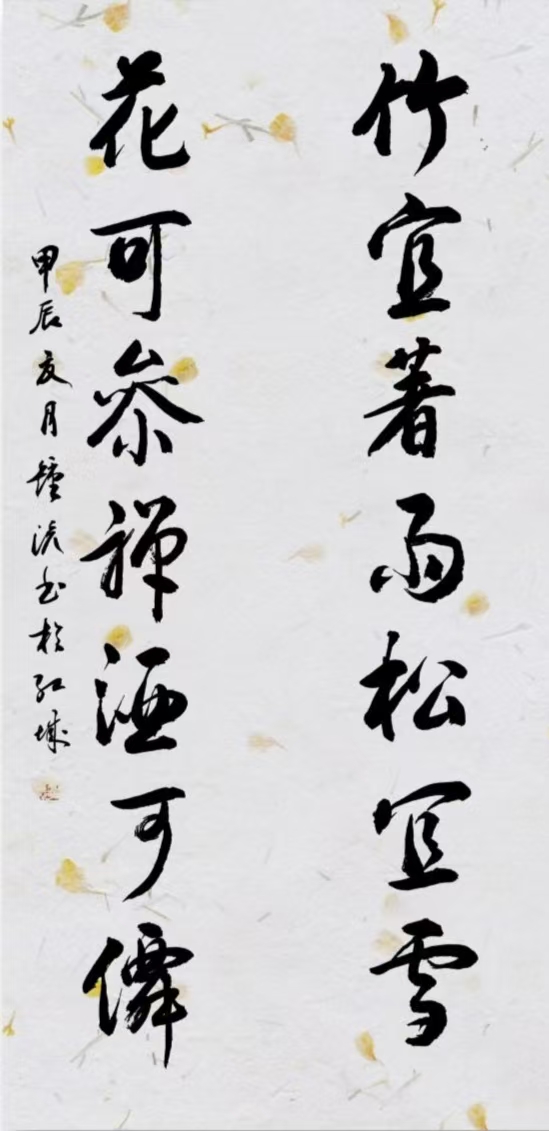 竹宜著雨松宜雪
花可参禅酒可僊
甲辰友月鐘浛书於江城